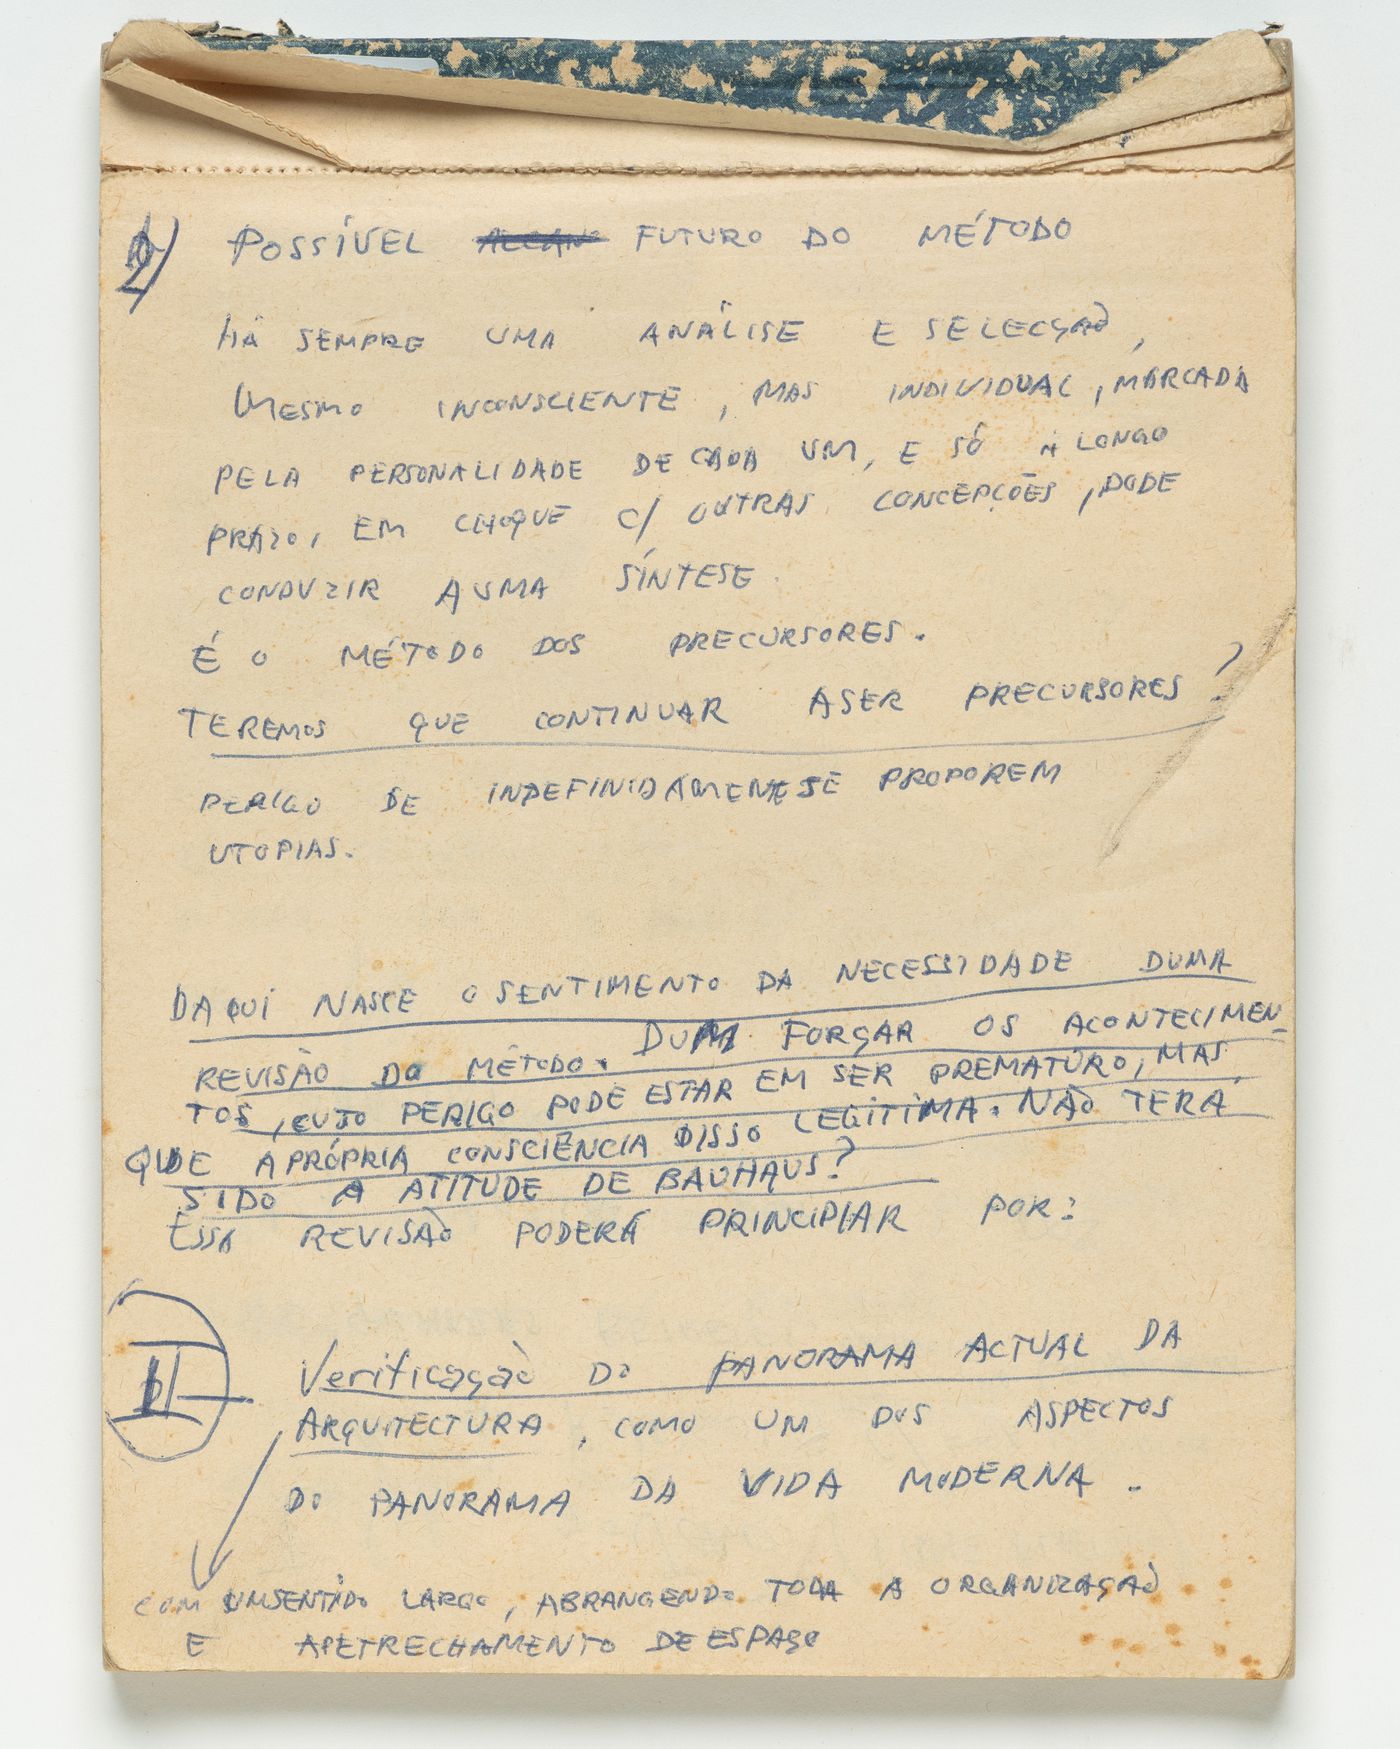 2) POSSÍVEL FUTURO DO MÉTODO
HÁ SEMPRE UMA ANÁLISE E SELECÇÃO,
MESMO INCONSCIENTE, MAS INDIVIDUAL, MARCADA
PELA PERSONALIDADE DE CADA UM, E SÓ A LONGO
PRAZO, EM CHOQUE C/ OUTRAS CONCEPÇÕES, PODE
CONDUZIR A UMA SÍNTESE.
É O MÉTODO DOS PRECURSORES.
TEREMOS QUE CONTINUAR A SER PRECURSORES?
PERIGO DE INDEFINIDAMENTE SE PROPOREM
UTOPIAS.
DAQUI NASCE O SENTIMENTO DA NECESSIDADE DUMA
REVISÃO DO MÉTODO. DUM FORÇAR OS ACONTECIMEN-
TOS, CUJO PERIGO PODE ESTAR EM SER PREMATÚRO, MAS
QUE A PRÓPRIA CONSCIÊNCIA DISSO LEGITIMA. NÃO TERÁ
SIDO A ATITUDE DE BAUHAUS?
ESSA REVISÃO PODERÁ PRINCIPIAR POR:
II Verificação do PANORAMA ACTUAL DA
ARQUITECTURA, COMO UM DOS ASPECTOS
DO PANORAMA DA VIDA MODERNA.
COM UM SENTIDO LARGO, ABRANGENDO TODA A ORGANIZAÇÃO
E APETRECHAMENTO DE ESPAÇO